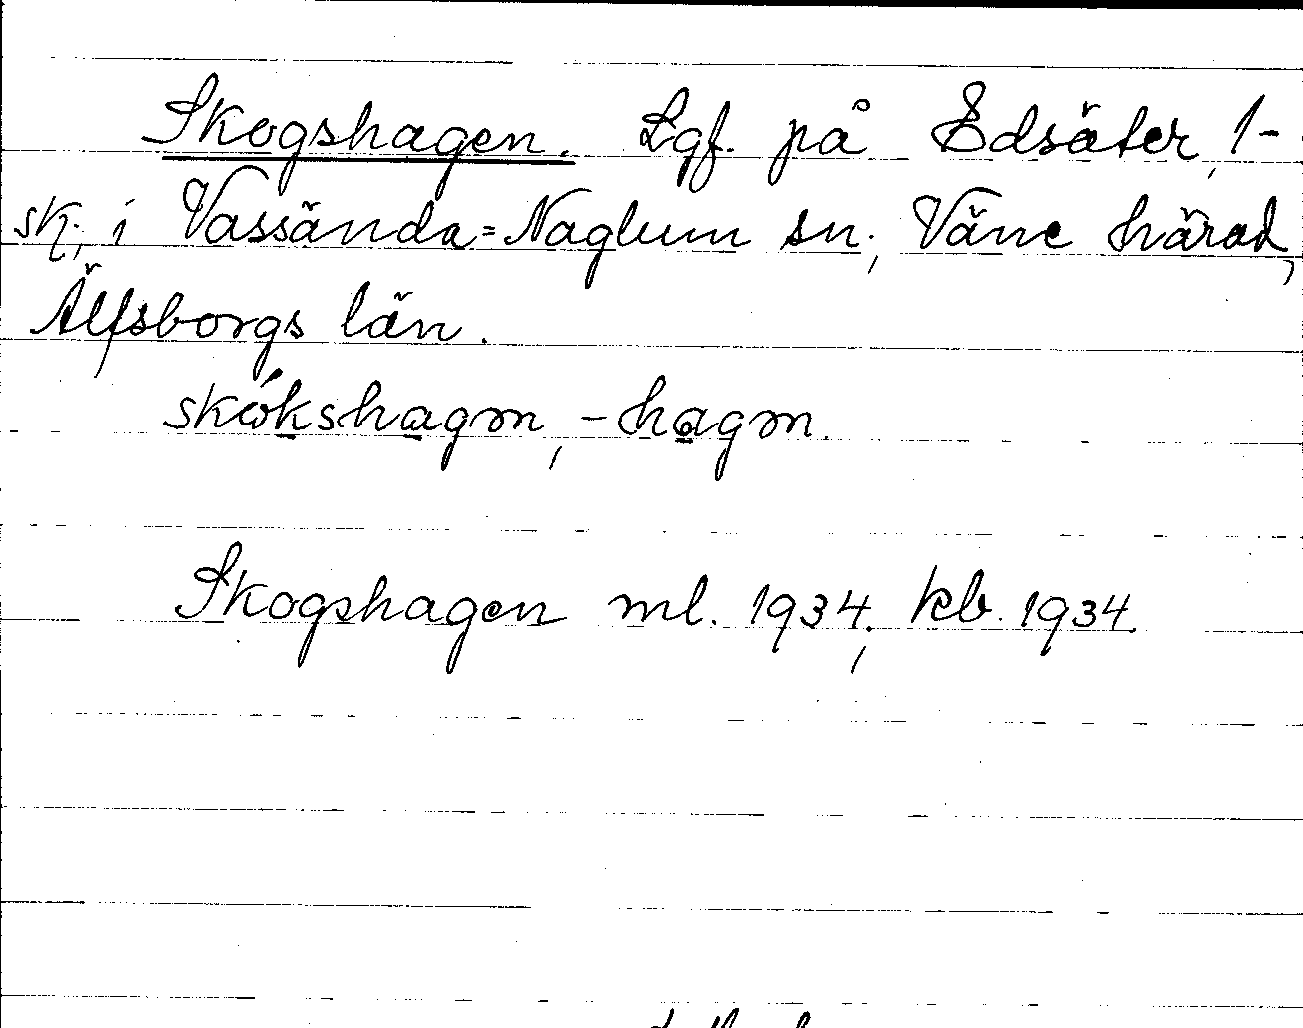 Skogshagen. Lgf. på Edsäter, 1-
sk; i Vassända=Naglum sn; Väne härad,
Älfsborgs län.
skókshagm, -hagm.
Skogshagen ml. 1934; kb. 1934.